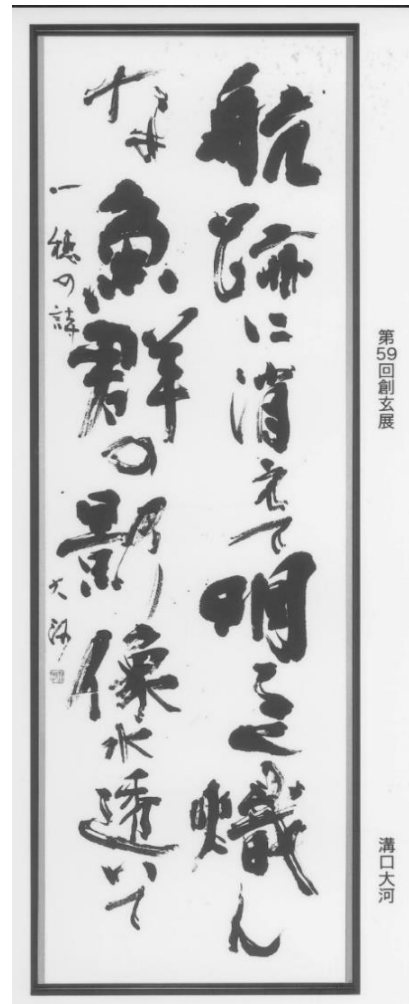 航跡に消えて明るく熾ん
な魚群の影像水透いて
一穂の詩　大河
第59回創玄展
溝口大河